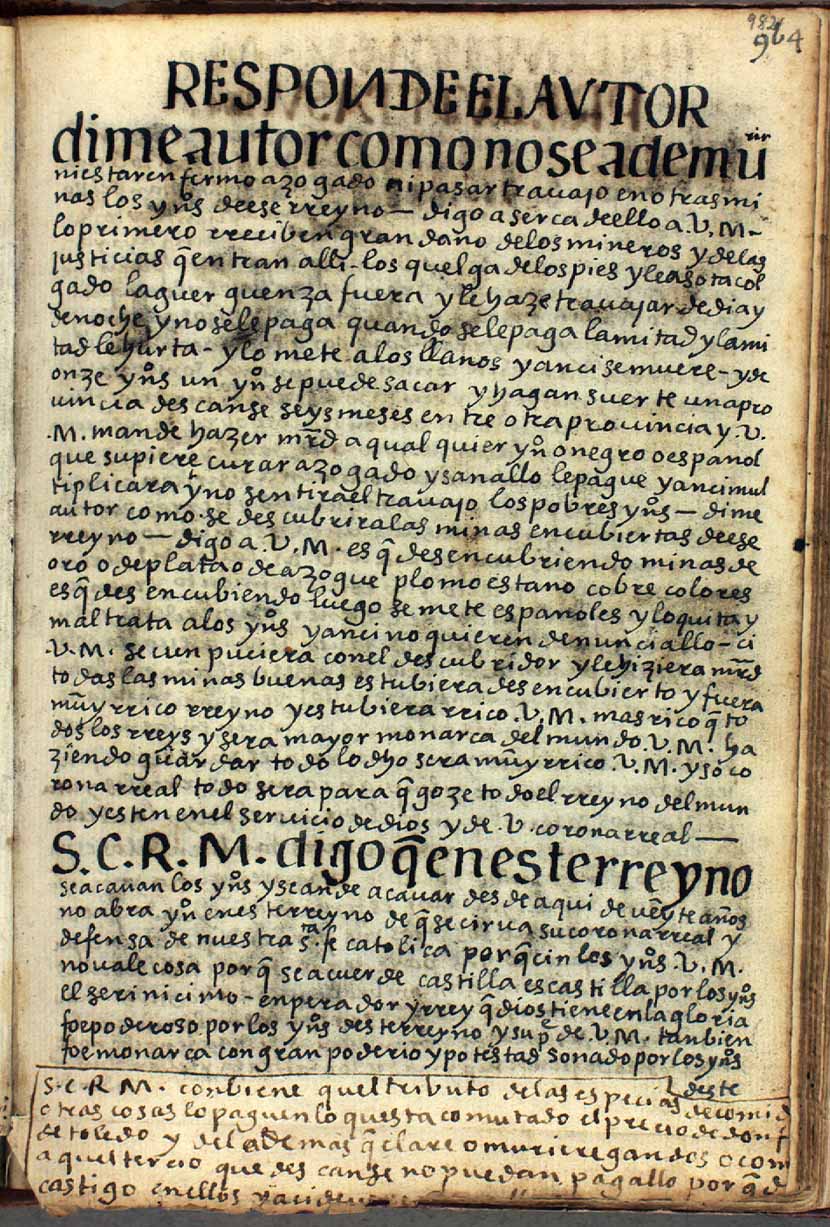 982
964
RESPONDE EL AVTOR
dime autor como no se a de mũ
rir
ni estar enfermo azogado ni pasar trauajo en otras mi
nas los yn͠s de ese rreyno — digo aserca de ello a. V. M. –
lo primero rreciben gran daño de los mineros y de las
justicias q̃ entran alli – los quelga de los pies y le asota col
gado la guer guenza fuera y le haze trauajar de dia y
de noche y no se le paga quando se le paga la mitad y la mi
tad le hurta – y lo mete a los llanos y anci se muere – y de
onze yn͠s un yn͠ se puede sacar y hagan suerte una pro
uincia descanse seys meses entre otra prouincia y. V.
.M. mande hazer mr̃d a qual quier yn͠ o negro o español
que supiere curar azogado y sanallo le pague y anci mul
tiplicara y no sentira el trauajo los pobres yn͠s – dime
autor como se descubrira las minas encubiertas de ese
rreyno — digo a. V. M. es q̃ desencubriendo minas de
oro o de plata o de azogue plomo estaño cobre colores
es q̃ desencubiendo luego se mete españoles y lo quita y
maltrata a los yn͠s y anci no quieren denunciallo – ci
.V. M. se cunpuciera con el descubridor y le hiziera mr̃d
todas las minas buenas estubiera desencubierto y fuera
mũy rrico rreyno y estubiera rrico. V. M. mas rico q̃ to
dos los rreys y sera mayor monarca del mundo. V. M. ha
ziendo guardar todo lo dho sera mũy rrico. V. M. y so co
rona rreal todo sera para q̃ goze todo el rreyno del mun
do y esten en el seruicio de dios y de. V. corona rreal —
S. C. R. M. digo q̃ en este rreyno
se acauan los yn͠s y se an de acauar desde aqui de ueỹte años
no abra yn͠ en este rreyno de q̃ se cirua su corona rreal y
defensa de nuestra s.ta fe catolica porq̃ cin los yn͠s. V. M.
no uale cosa porq̃ se acuerde castilla es castilla por los yn͠s
el serinicimo – enperador y rrey q̃ dios tiene en la gloria
foe poderoso por los yn͠s deste rreyno y su p.e de. V. M. tanbien
foe monarca con gran poderio y potestad sonado por los yn͠s
deste
S. C. R. M. conbiene quel tributo de las especias de comid
otras cosas lo paguen lo questa comutado el precio de don f
de toledo y del ademas q̃ elare o muriere ganados o com
aquel tercio que descanse no puedan pagallo porq̃ d
castigo en ellos y aci